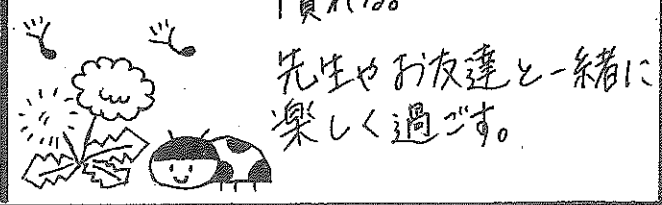 慣れる。
先生やお友達と一緒に
楽しく過ごす。